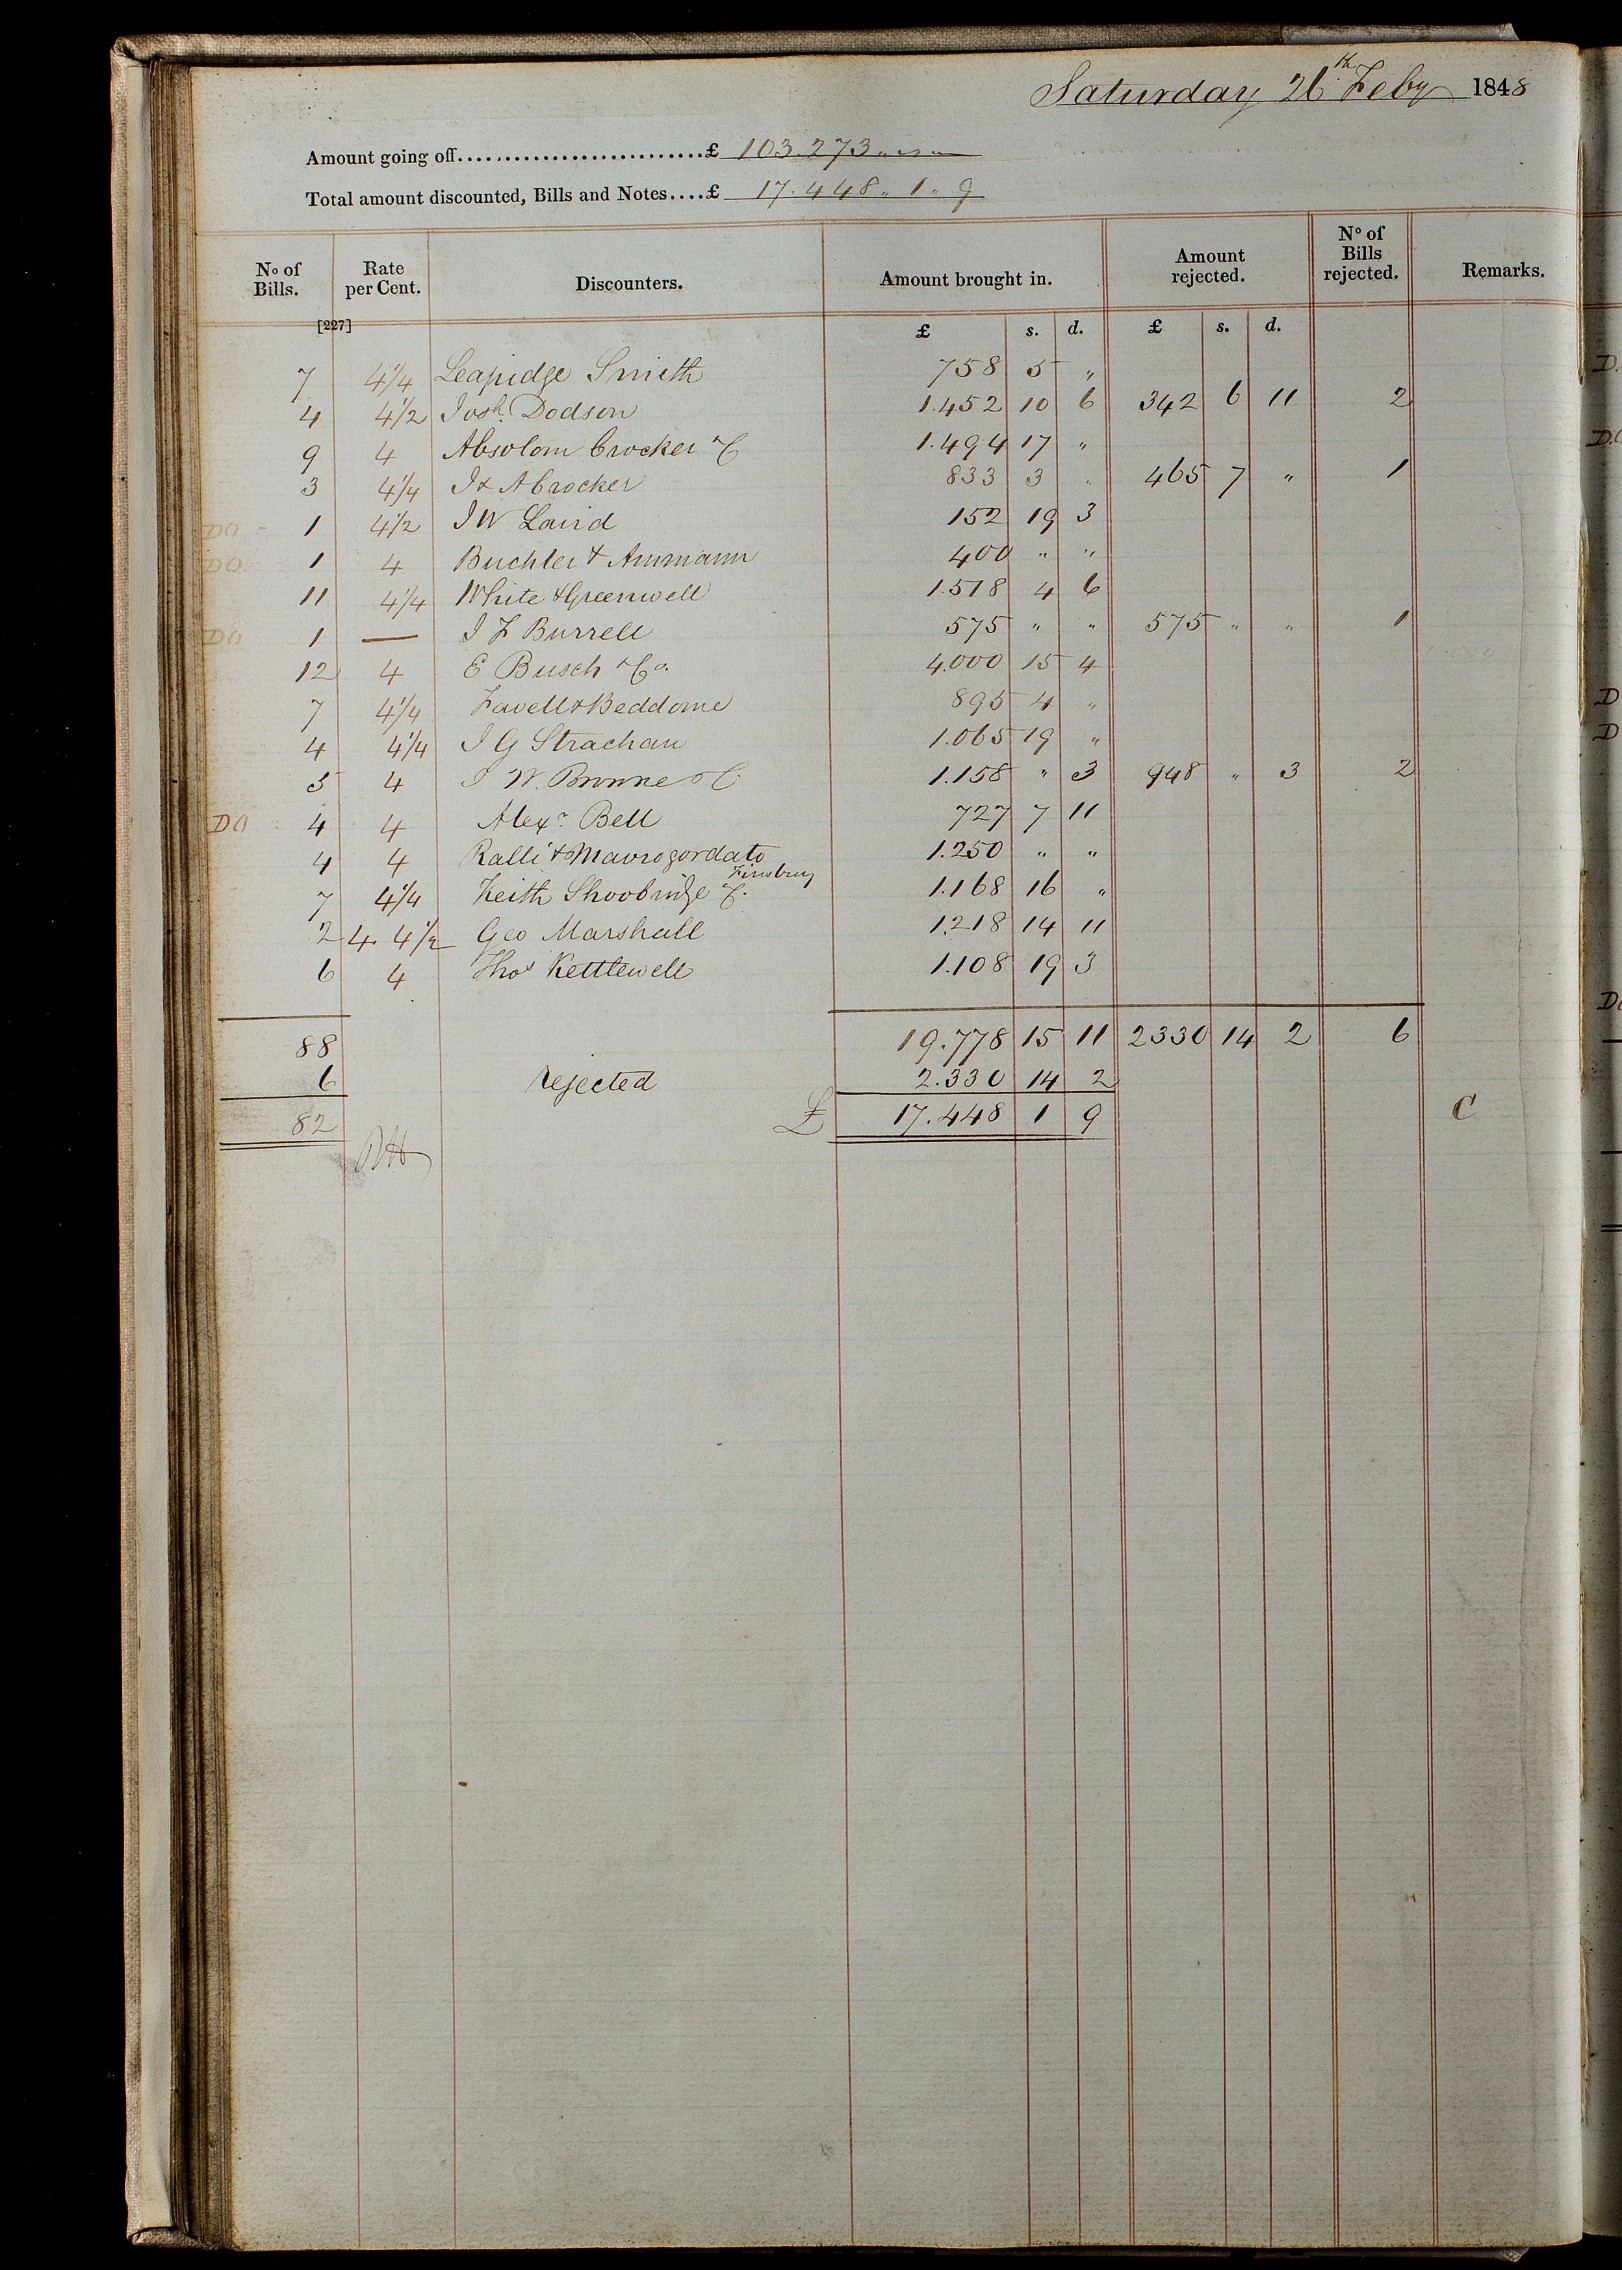 Saturday 26th Feby 1848
Amount going off...........................£ 103.273 " " "
Total amount discounted, Bills and Notes....£ 17.448 " 1 " 9
No of Bills. Rate per Cent. Discounters. Amount brought in. Amount rejected. No of Bills rejected. Remarks.
[227] £ s. d. £ s. d.
7 4 1/4 Leapidge Smith 758 5 "
4 4 1/2 Josh Dodson 1.452 10 6 342 6 11 2
9 4 Absolom Crocker & C 1.494 17 "
3 4 1/4 J & A Crocker 833 3 " 465 7 " 1
DO 1 4 1/2 J W Laird 152 19 3
DO 1 4 Buchler & Ammann 400 " "
11 4 1/4 White & Greenwell 1.518 4 6
DO 1 — J F Burrell 575 " " 575 " " 1
12 4 E Busch & Co. 4.000 15 4
7 4 1/4 Favell & Beddome 895 4 "
4 4 1/4 J G Strachan 1.065 19 "
5 4 J W. Browne & C. 1.158 " 3 948 " 3 2
DO 4 4 Alexr Bell 727 7 11
4 4 Ralli & Mavrogordato 1.250 " "
Finsbury
7 4 1/4 Keith Shoobridge & C. 1.168 16 "
2 4. 4 1/2 Geo Marshall 1.218 14 11
6 4 Thos Kettlewell 1.108 19 3
88 19.778 15 11 2330 14 2 6
6 rejected 2.330 14 2
82 £ 17.448 1 9 C